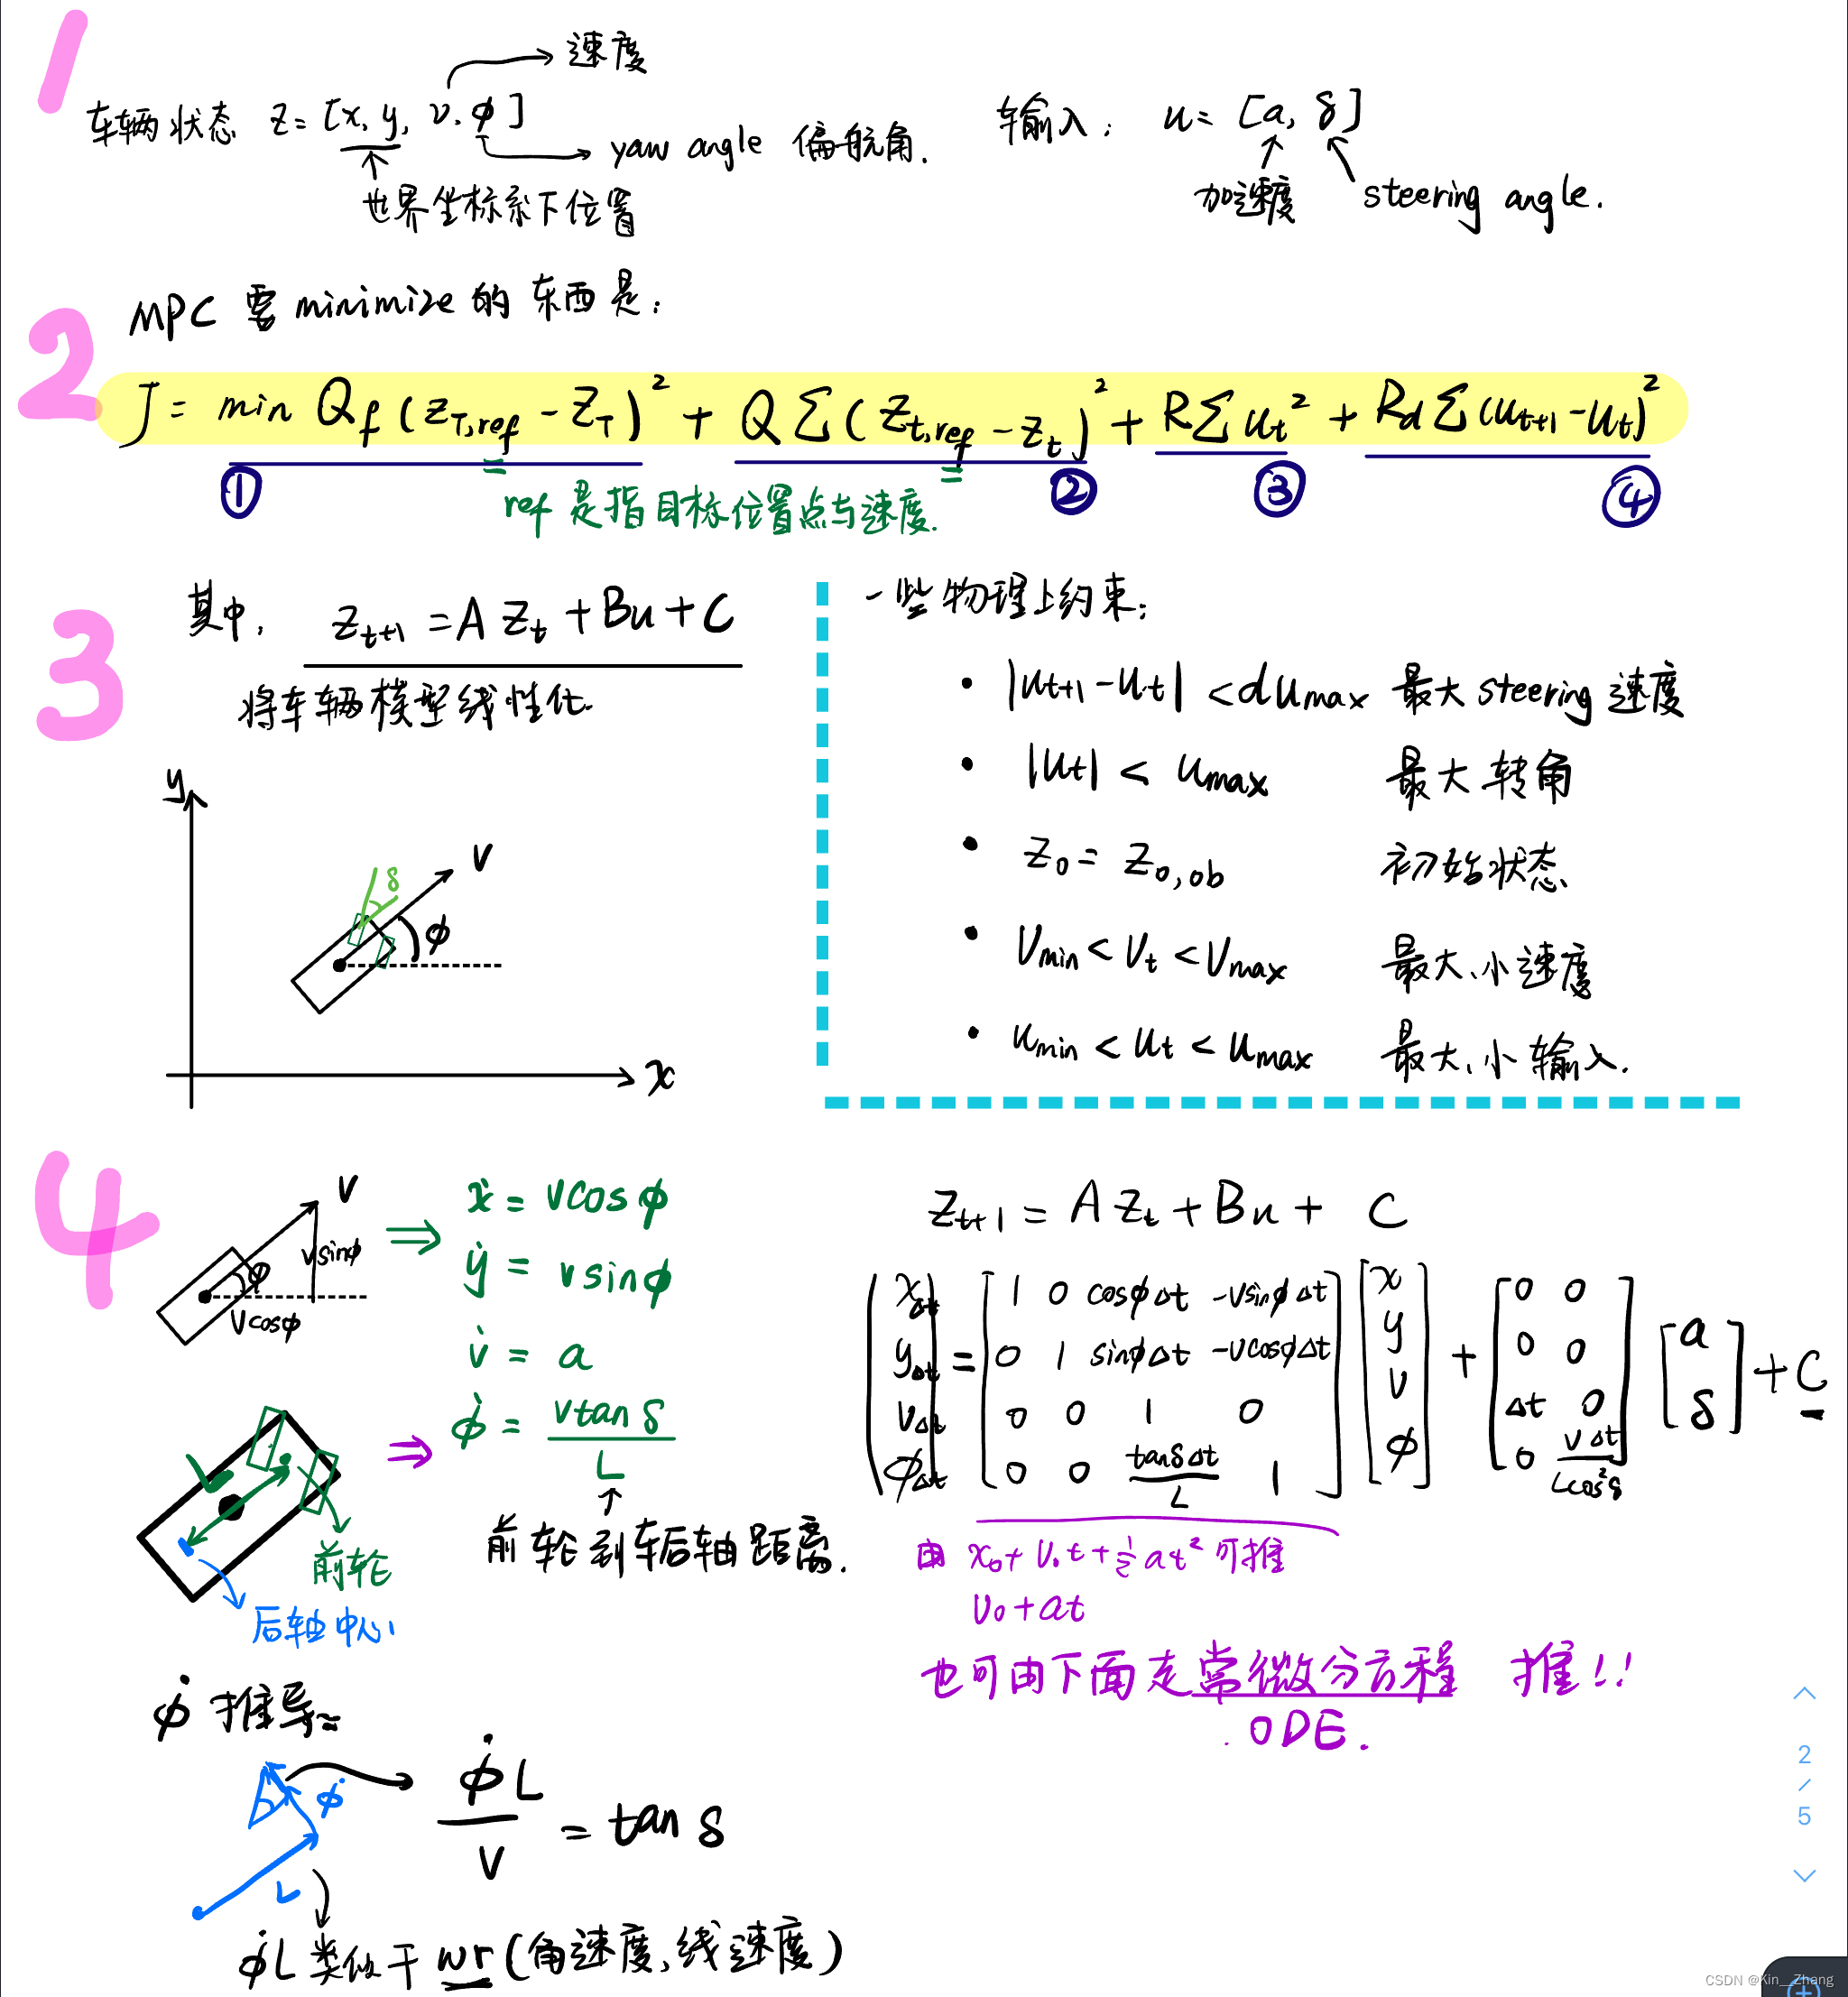 1
速度
车辆状态 z=[x, y, v, φ]
yaw angle 偏航角.
世界坐标系下位置
输入: u=[a, δ]
加速度 steering angle.
2
MPC 要 minimize 的东西是:
J = min Q_f (z_{T,ref} - z_T)² + Q Σ (z_{t,ref} - z_t)² + R Σ u_t² + R_d Σ (u_{t+1} - u_t)²
① ② ③ ④
ref 是指目标位置点与速度.
3
其中, z_{t+1} = A z_t + Bu + C
将车辆模型线性化.
y
v
δ
φ
x
一些物理上约束:
• |u_{t+1} - u_t| < du_max 最大 steering 速度
• |u_t| < u_max 最大转角
• z_0 = z_{0,ob} 初始状态
• v_min < v_t < v_max 最大、小速度
• u_min < u_t < u_max 最大、小输入.
4
v
vsinφ
φ
vcosφ
⇒ ẋ = vcosφ
ẏ = vsinφ
v̇ = a
⇒ φ̇ = vtanδ / L
L
前轮
后轴中心
前轮到车后轴距离.
z_{t+1} = A z_t + Bu + C
[x_Δt] = [1 0 cosφΔt -vsinφΔt] [x] + [0 0] [a] + C
[y_Δt] [0 1 sinφΔt -vcosφΔt] [y] [0 0] [δ]
[v_Δt] [0 0 1 0] [v] [Δt 0]
[φ_Δt] [0 0 tanδΔt/L 1] [φ] [0 vΔt/Lcos²δ]
由 x_0 + v_0 t + ½at² 可推
v_0 + at
也可由下面走常微分方程 推!!
ODE.
φ̇ 推导~
φ̇
φ̇L / v = tanδ
L
φ̇L 类似于 wr (角速度,线速度)
2
/
5
CSDN @Kin__Zhang